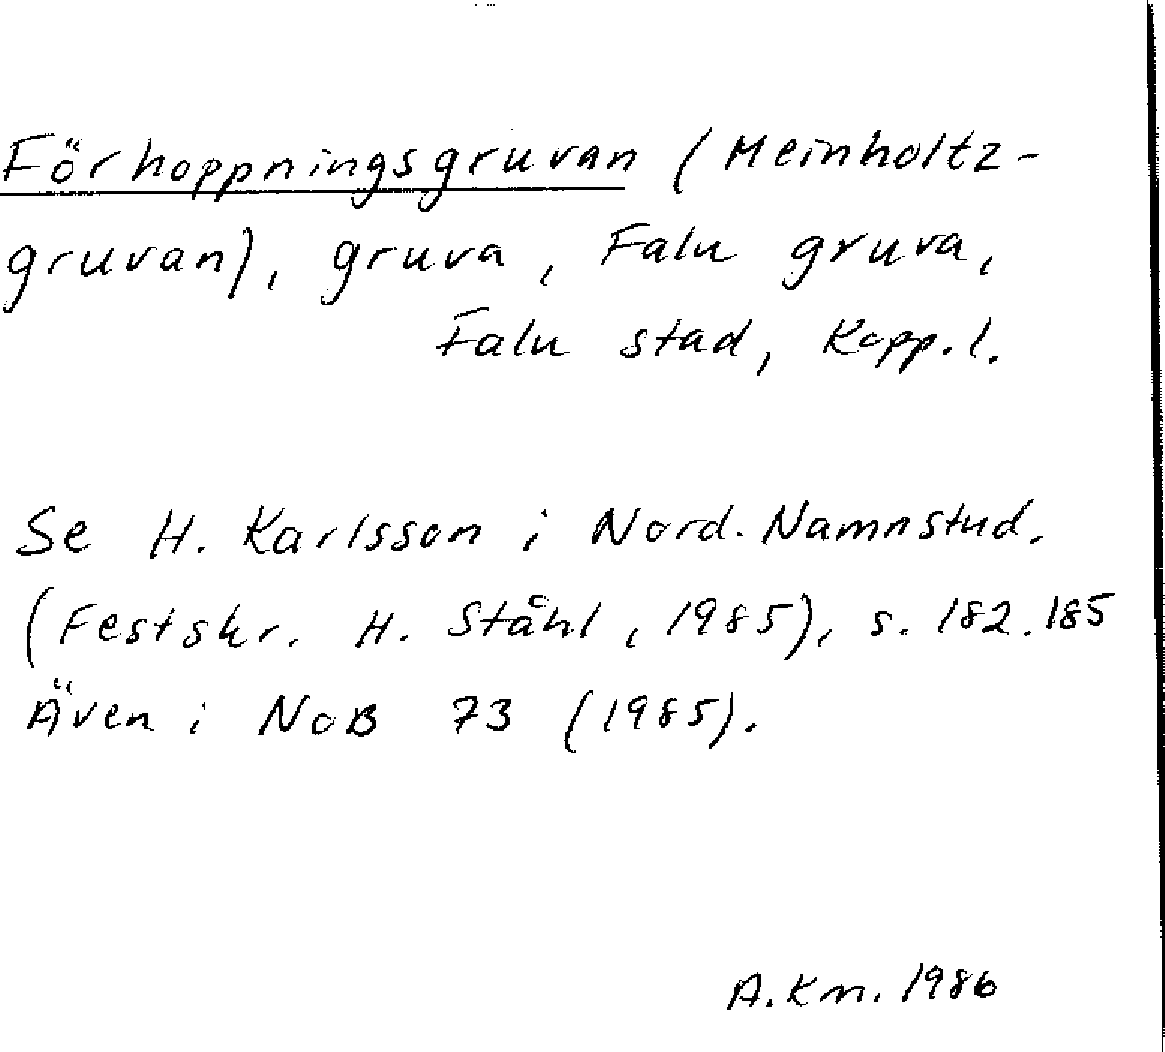 Förhoppningsgruvan (Meinholtz-
gruvan), gruva, Falu gruva,
Falu stad, Kopp.l.
Se H. Karlsson i Nord. Namnstud.
(Festskr. H. Ståhl, 1985), s. 182. 185
Även i NoB 73 (1985).
A. Km. 1986